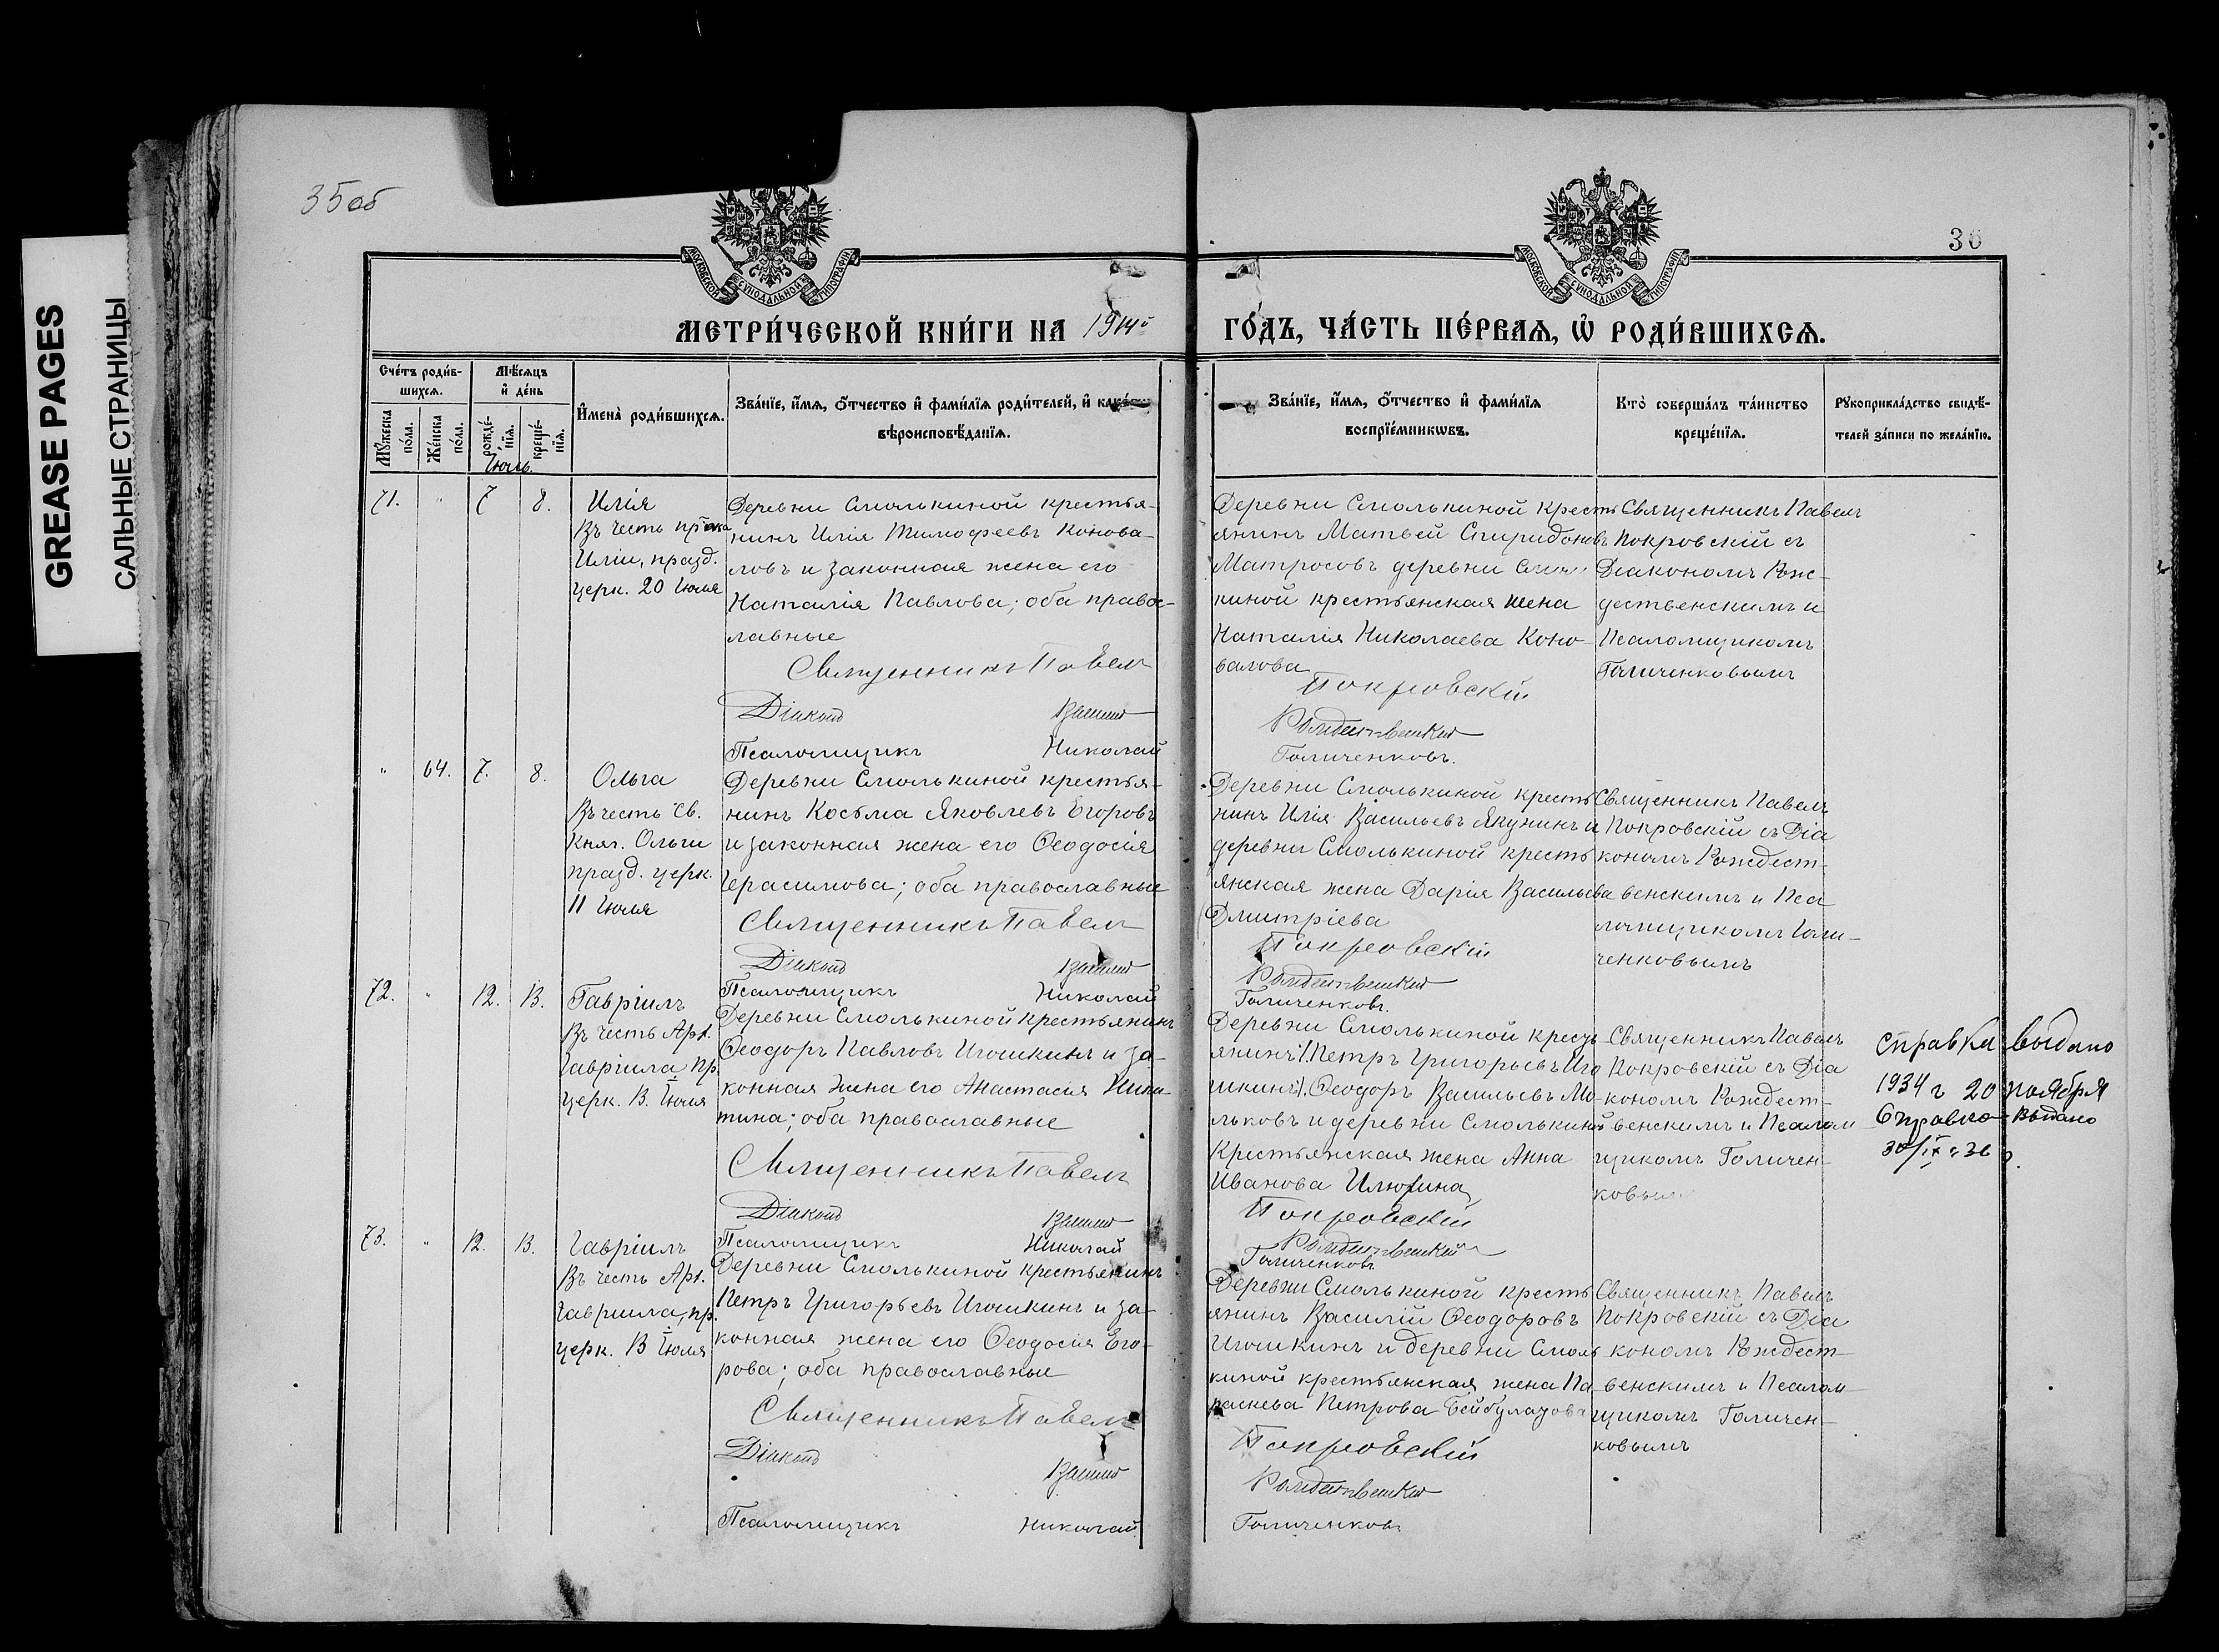 GREASE PAGES
САЛЬНЫЕ СТРАНИЦЫ
35об
36
МОСКОВСКОЙ СУНОДАЛЬНОЙ ТИПОГРАФІИ
МОСКОВСКОЙ СУНОДАЛЬНОЙ ТИПОГРАФІИ
МЕТРИ́ЧЕСКОЙ КНИ́ГИ НА 1914й
ГО́ДЪ, ЧА́СТЬ ПЕ́РВАЯ, Ѡ҆ РОДИ́ВШИХСѦ.
Сче́тъ роди́в-
шихсѧ.
Мꙋ́жеска по́ла.
Же́нска по́ла.
Мѣ́сѧцъ
и҆ де́нь
рожде́-нїѧ.
креще́-нїѧ.
Июль.
И҆мена̀ роди́вшихсѧ.
Зва́нїе, и҆́мѧ, ѻ҆́тчество и҆ фами́лїѧ роди́телей, и҆ како́гѡ
вѣроисповѣ́данїѧ.
Зва́нїе, и҆́мѧ, ѻ҆́тчество и҆ фами́лїѧ
воспрїе́мникѡвъ.
Кто̀ соверша́лъ та́инство
креще́нїѧ.
Рꙋкоприкла́дство свидѣ́-
телей за́писи по жела́нїю.
71.
"
7
8.
Илія
Въ честь прока
Иліи, празд.
церк. 20 Июля
Деревни Смолькиной крестья-
нинъ Илія Тимофеевъ Конова-
ловъ и законная жена его
Наталія Павлова; оба правос-
лавные
Священникъ Павелъ
Діаконъ Василій
Псаломщикъ Николай
Деревни Смолькиной кресть
янинъ Матвей Спиридоновъ
Матросовъ деревни Смоль
киной крестьянская жена
Наталія Николаева Коно-
валова
Покровскій
Рождественскій
Голиченковъ.
Священникъ Павелъ
Покровскій съ
Діакономъ Рож-
дественскимъ и
Псаломщикомъ
Голиченковымъ
"
64.
7.
8.
Ольга
Въ честь Св.
Княг. Ольги
празд. церк.
11 Июля
Деревни Смолькиной крестья-
нинъ Косьма Яковлевъ Егоровъ
и законная жена его Ѳеодосія
Герасимова; оба православные
Священникъ Павелъ
Діаконъ Василій
Псаломщикъ Николай
Деревни Смолькиной кресть
нинъ Илія Васильевъ Якунинъ и
деревни Смолькиной кресть
янская жена Дарія Васильева
Дмитріева
Покровскій
Рождественскій
Голиченковъ.
Священникъ Павелъ
Покровскій съ Діа
кономъ Рождест-
венскимъ и Пса
ломщикомъ Голи-
ченковымъ
72.
"
12.
13.
Гавріилъ
Въ честь Арх.
Гавріила, пр.
церк. 13. Июля
Деревни Смолькиной крестьянинъ
Ѳеодоръ Павловъ Игошкинъ и за-
конная жена его Анастасія Ники-
тина; оба православные
Священникъ Павелъ
Діаконъ Василій
Псаломщикъ Николай
Деревни Смолькиной кресть
янинъ Петръ Григорьевъ Иго
шкинъ Ѳеодоръ Васильевъ Ми-
льковъ и деревни Смолькиной
Крестьянская жена Анна
Иванова Илюхина
Покровскій
Рождественскій
Голиченковъ
Священникъ Павелъ
Покровскій съ Діа
кономъ Рождест-
венскимъ и Псалом
щикомъ Голичен-
ковым
Справка выдано
1934 г 20 ноября
Справка выдано
30/IX 36 г.
73.
"
12.
13.
Гавріилъ
Въ честь Арх.
Гавриила, пр.
церк. 13 Июля
Деревни Смолькиной крестьянинъ
Петръ Григорьевъ Игошкинъ и за-
конная жена его Ѳеодосія Его-
рова; оба православные
Священникъ Павелъ
Діаконъ Василій
Псаломщикъ Николай
Деревни Смолькиной кресть
янинъ Василій Ѳеодоровъ
Игошкинъ и деревни Смоль
киной крестьянская жена Па
раскева Петрова Бейбулатова
Покровскій
Рождественскій
Голиченковъ
Священникъ Павелъ
Покровскій съ Діа
кономъ Рождест-
венскимъ и Псалом
щикомъ Голичен-
ковымъ